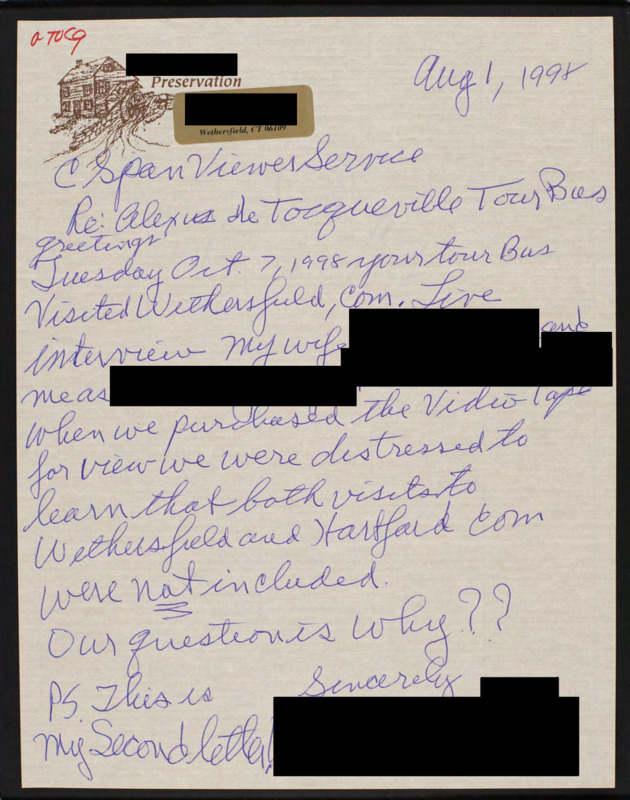 a TOCQ
Preservation
Wethersfield, CT 06109
Aug 1, 1998
C Span Viewer Service
Re: Alexus de Tocqueville Tour Bus
greetings
Tuesday Oct. 7, 1998 your tour Bus
Visited Wethersfield, Com. Live
interview my wife and
me as
when we purchased the Video Tape
for view we were distressed to
learn that both visits to
Wethersfield and Hartford Com
were not included.
Our question is why??
Sincerely
PS. This is
my Second letter!